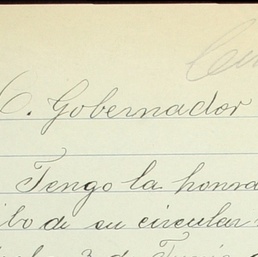 C. Gobernador
Tengo la honra
ibo de su circular
3 d